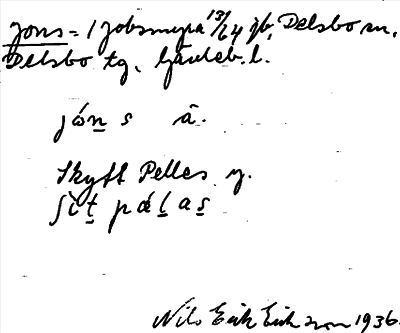 Jons = 1 Jobsmyra 13/24 jb, Delsbo sn,
Delsbo tg. Gävleb. l.
jón s â.
Skytt Pelles y.
ʃìt pálas
Nils Erik Eriksson 1936.